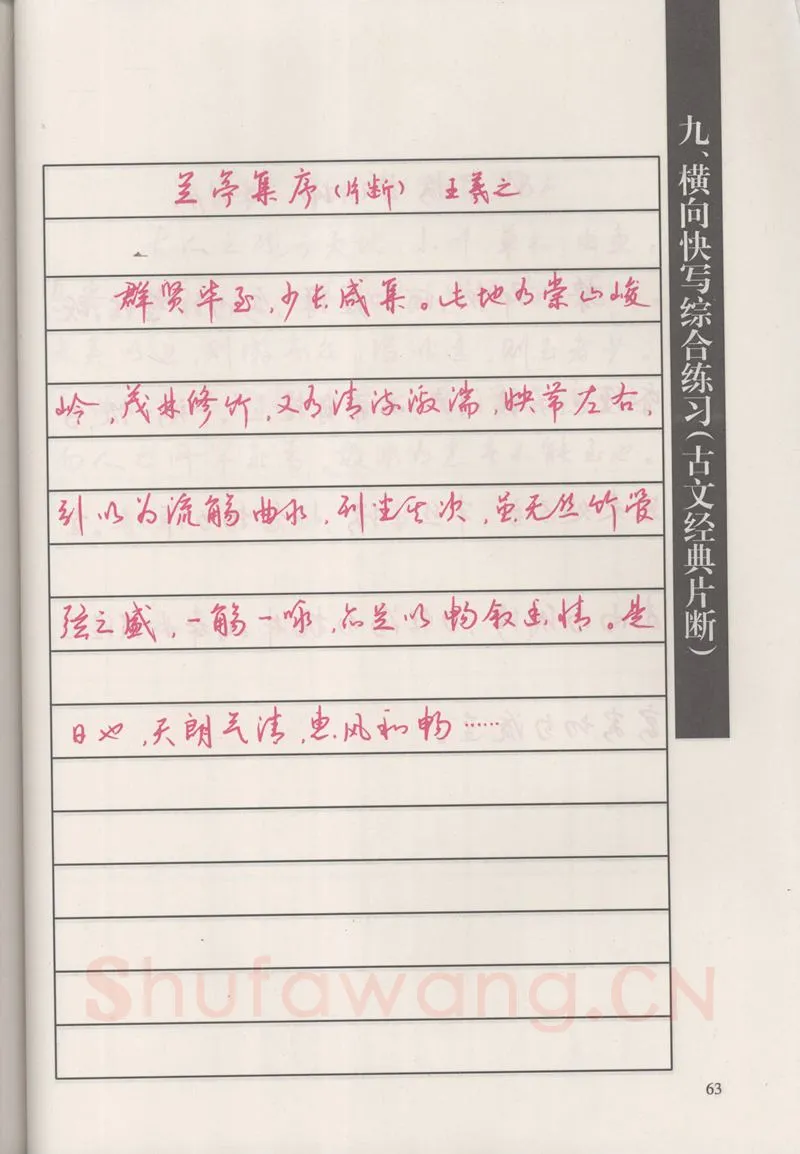 九、横向快写综合练习（古文经典片断）
兰亭集序（片断） 王羲之
群贤毕至，少长咸集。此地有崇山峻
岭，茂林修竹，又有清流激湍，映带左右，
引以为流觞曲水，列坐其次，虽无丝竹管
弦之盛，一觞一咏，亦足以畅叙幽情。是
日也，天朗气清，惠风和畅……
Shufawang.CN
63